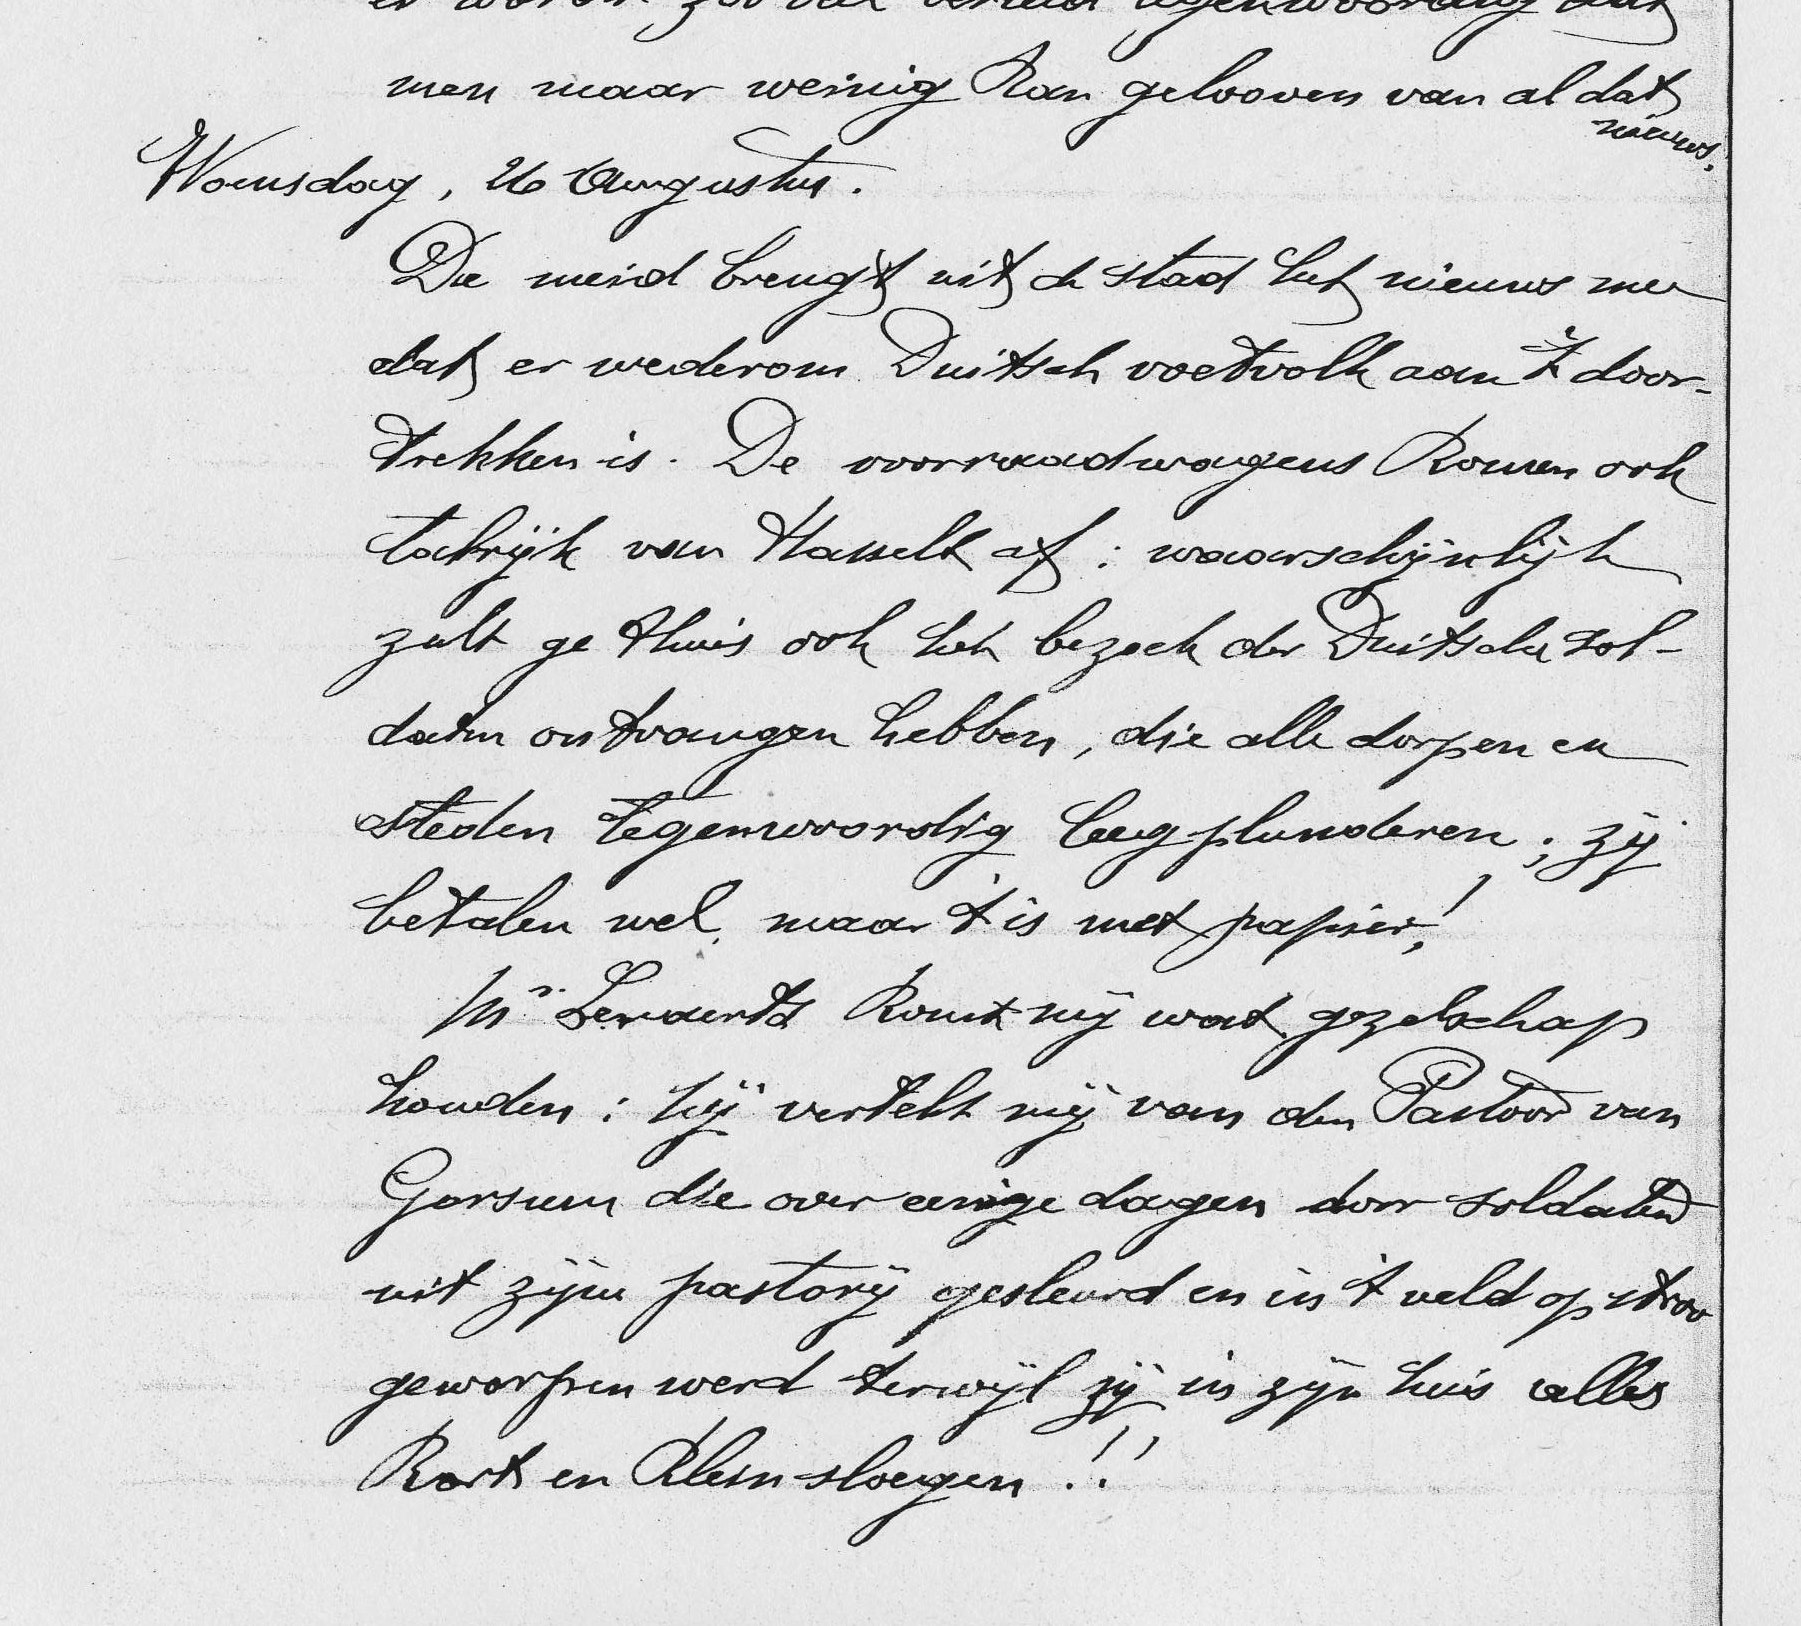 er wordt zooveel verteld tegenwoordig dat
men maar weinig kan gelooven van al dat
nieuws.
Woensdag, 26 Augustus.
De meid brengt uit de stad het nieuws mee
dat er wederom Duitsch voetvolk aan 't door-
trekken is. De voorraadwagens komen ook
talrijk van Hasselt af : waarschijnlijk
zult ge thuis ook het bezoek der Duitsche sol-
daten ontvangen hebben, die alle dorpen en
steden tegenwoordig leeg plunderen ; zij
betalen wel, maar 't is met papier!
Mr. Lenaerts komt mij wat gezelschap
houden : hij vertelt mij van den Pastoor van
Gorsum die over eenige dagen door soldaten
uit zijne pastorij gesleurd en in 't veld op stroo
geworpen werd terwijl zij in zijn huis alles
kort en klein sloegen !!